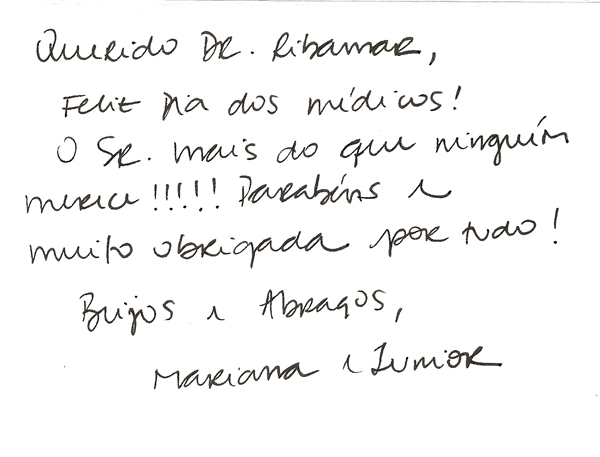 Querido Dr. Ribamar,
Feliz dia dos médicos!
O Sr. mais do que ninguém
merece !!!!! Parabéns e
muito obrigada por tudo!
Beijos e Abraços,
Mariana e Junior